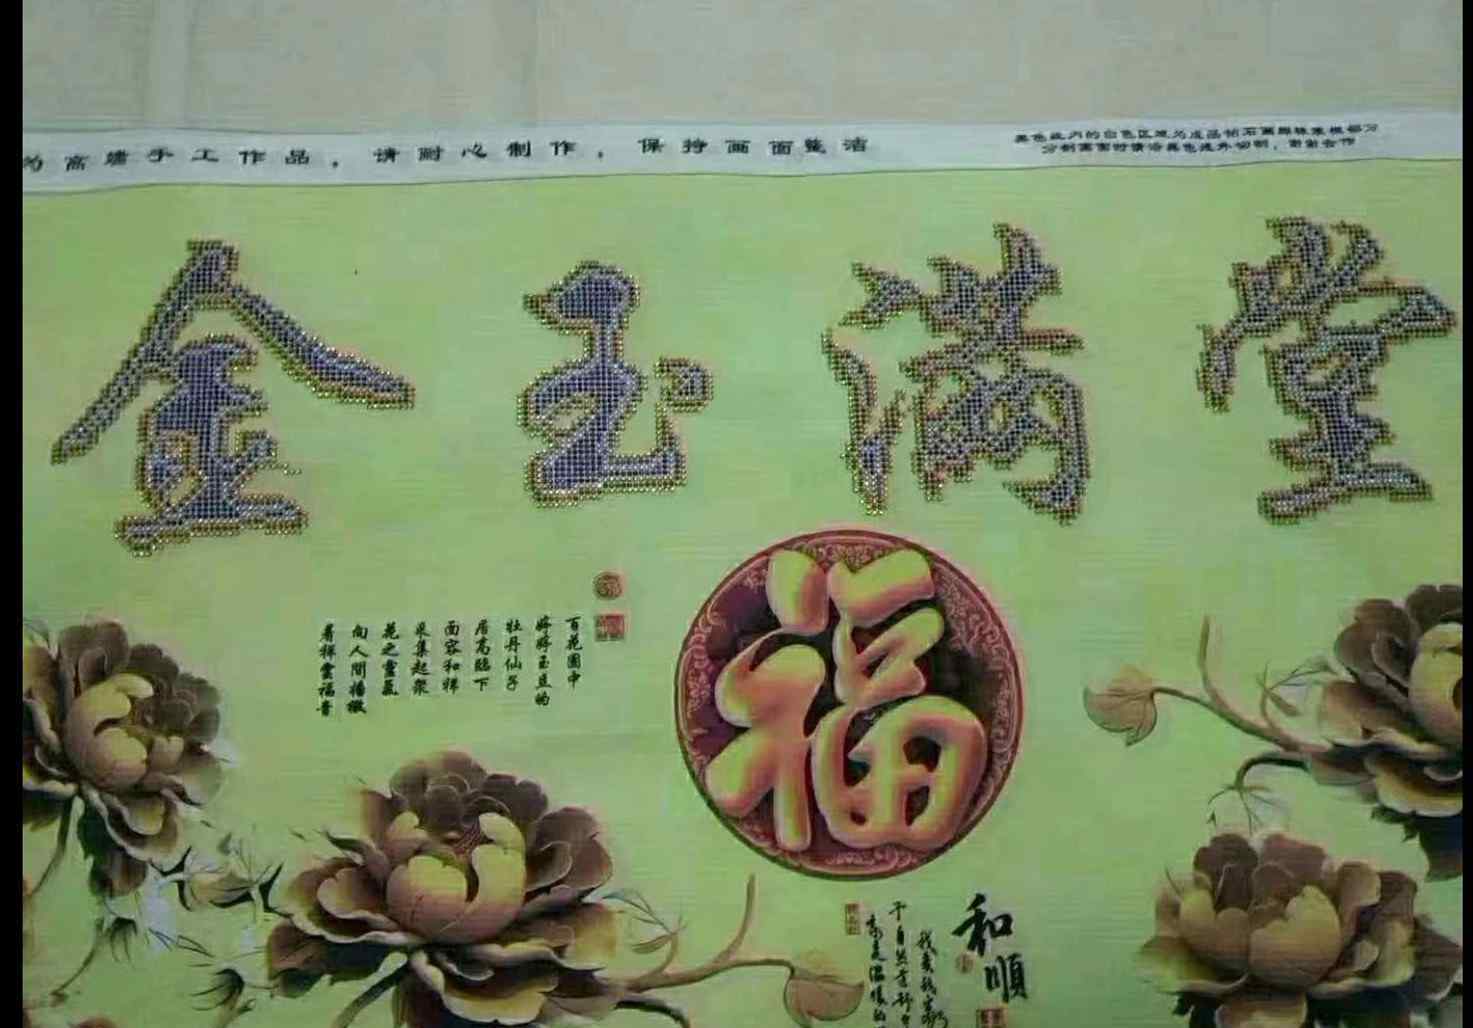 的高端手工作品，请耐心制作，保持画面整洁
黑色线内的白色区域为成品钻石画脚珠裱框部分
分割画面时请沿黑色线外切割，谢谢合作
金玉满堂
百花園中
婷婷玉立的
牡丹仙子
居高臨下
面容和祥
采集起聚
花之靈氣
向人間播撒
着祥雲福音
福
和順